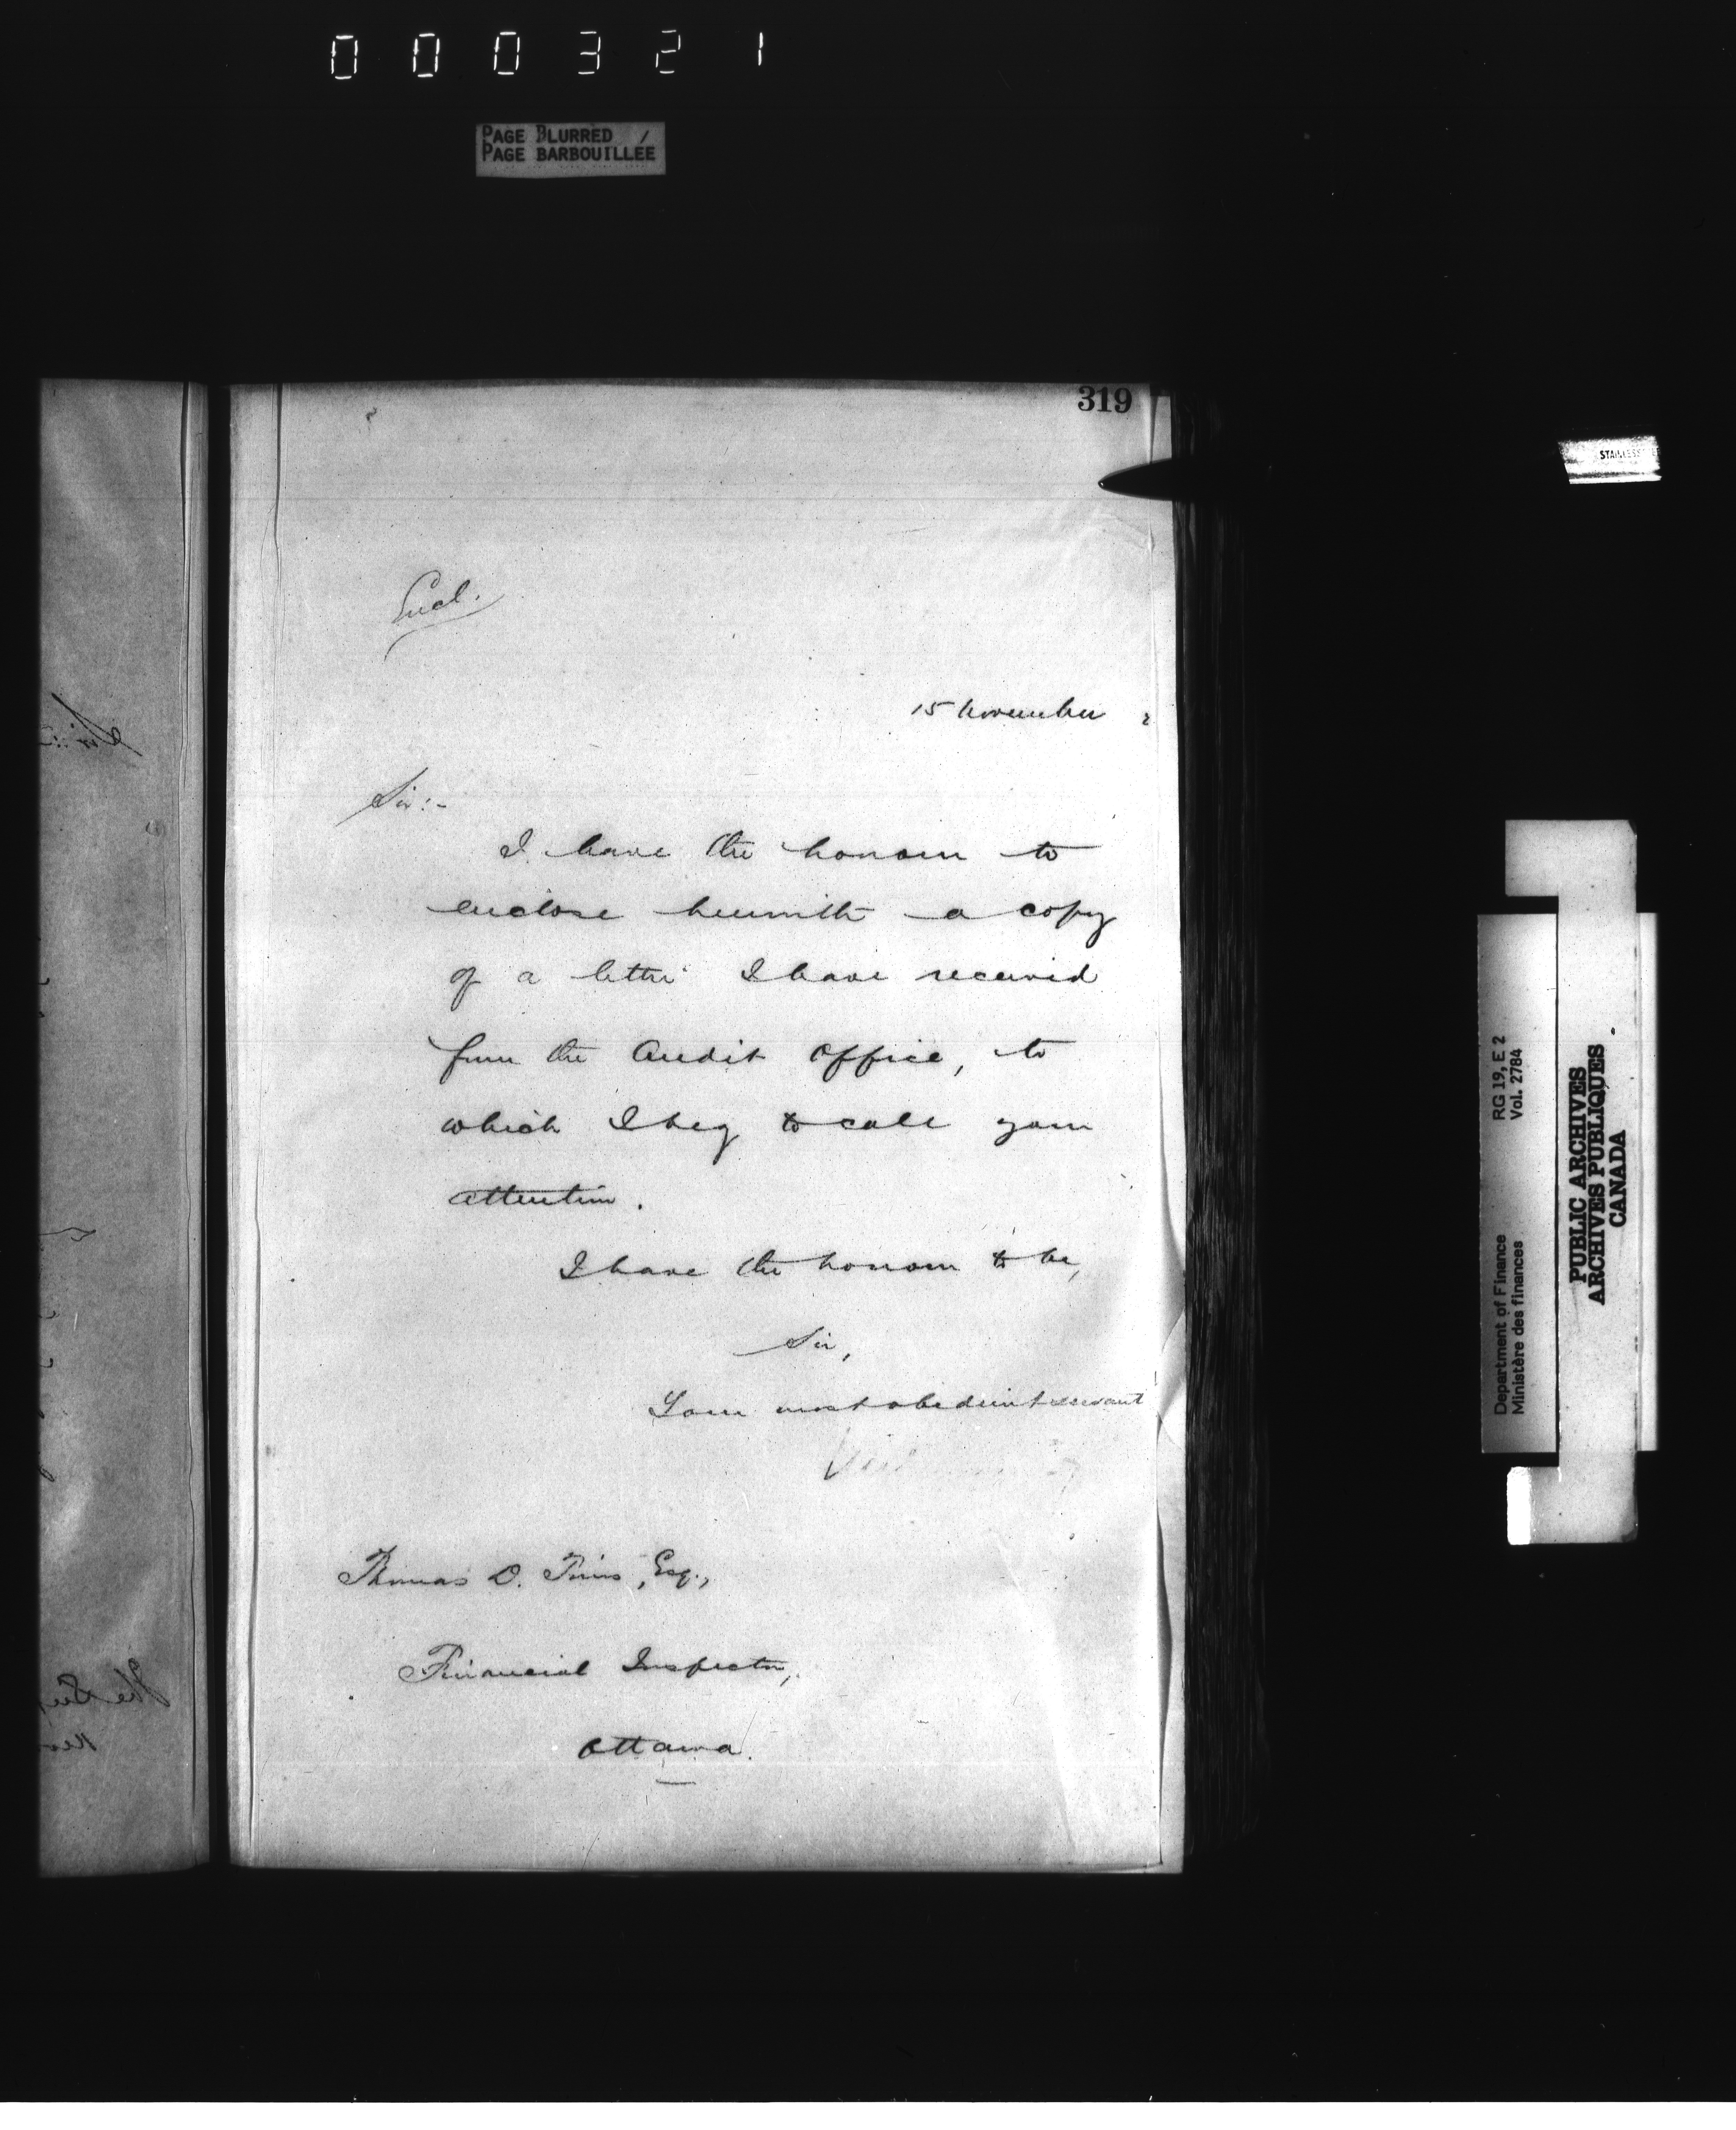 000321
PAGE BLURRED /
PAGE BARBOUILLÉE
319
Encl.
15 November 2
Sir:-
I have the honour to
enclose herewith a copy
of a letter I have received
from the Audit Office, to
which I beg to call your
attention.
I have the honour to be,
Sir,
Your most obedient servant
Thomas D. Tims, Esq.,
Financial Inspector,
Ottawa.
STAINLESS
Department of Finance RG 19, E 2
Ministère des finances Vol. 2784
PUBLIC ARCHIVES
ARCHIVES PUBLIQUES
CANADA